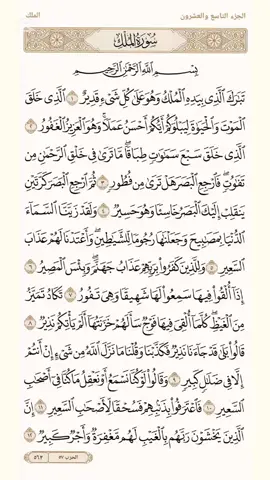 الجزء التاسع والعشرون
الملك
سُورَةُ الْمُلْكِ
بِسْمِ اللَّهِ الرَّحْمَٰنِ الرَّحِيمِ
تَبَارَكَ الَّذِي بِيَدِهِ الْمُلْكُ وَهُوَ عَلَىٰ كُلِّ شَيْءٍ قَدِيرٌ ١ الَّذِي خَلَقَ
الْمَوْتَ وَالْحَيَاةَ لِيَبْلُوَكُمْ أَيُّكُمْ أَحْسَنُ عَمَلًا وَهُوَ الْعَزِيزُ الْغَفُورُ ٢
الَّذِي خَلَقَ سَبْعَ سَمَاوَاتٍ طِبَاقًا مَّا تَرَىٰ فِي خَلْقِ الرَّحْمَٰنِ مِن
تَفَاوُتٍ فَارْجِعِ الْبَصَرَ هَلْ تَرَىٰ مِن فُطُورٍ ٣ ثُمَّ ارْجِعِ الْبَصَرَ كَرَّتَيْنِ
يَنقَلِبْ إِلَيْكَ الْبَصَرُ خَاسِئًا وَهُوَ حَسِيرٌ ٤ وَلَقَدْ زَيَّنَّا السَّمَاءَ
الدُّنْيَا بِمَصَابِيحَ وَجَعَلْنَاهَا رُجُومًا لِّلشَّيَاطِينِ وَأَعْتَدْنَا لَهُمْ عَذَابَ
السَّعِيرِ ٥ وَلِلَّذِينَ كَفَرُوا بِرَبِّهِمْ عَذَابُ جَهَنَّمَ وَبِئْسَ الْمَصِيرُ ٦
إِذَا أُلْقُوا فِيهَا سَمِعُوا لَهَا شَهِيقًا وَهِيَ تَفُورُ ٧ تَكَادُ تَمَيَّزُ
مِنَ الْغَيْظِ كُلَّمَا أُلْقِيَ فِيهَا فَوْجٌ سَأَلَهُمْ خَزَنَتُهَا أَلَمْ يَأْتِكُمْ نَذِيرٌ ٨
قَالُوا بَلَىٰ قَدْ جَاءَنَا نَذِيرٌ فَكَذَّبْنَا وَقُلْنَا مَا نَزَّلَ اللَّهُ مِن شَيْءٍ إِنْ أَنتُمْ
إِلَّا فِي ضَلَالٍ كَبِيرٍ ٩ وَقَالُوا لَوْ كُنَّا نَسْمَعُ أَوْ نَعْقِلُ مَا كُنَّا فِي أَصْحَابِ
السَّعِيرِ ١٠ فَاعْتَرَفُوا بِذَنبِهِمْ فَسُحْقًا لِّأَصْحَابِ السَّعِيرِ ١١ إِنَّ
الَّذِينَ يَخْشَوْنَ رَبَّهُم بِالْغَيْبِ لَهُم مَّغْفِرَةٌ وَأَجْرٌ كَبِيرٌ ١٢
الحزب ٥٧
٥٦٢